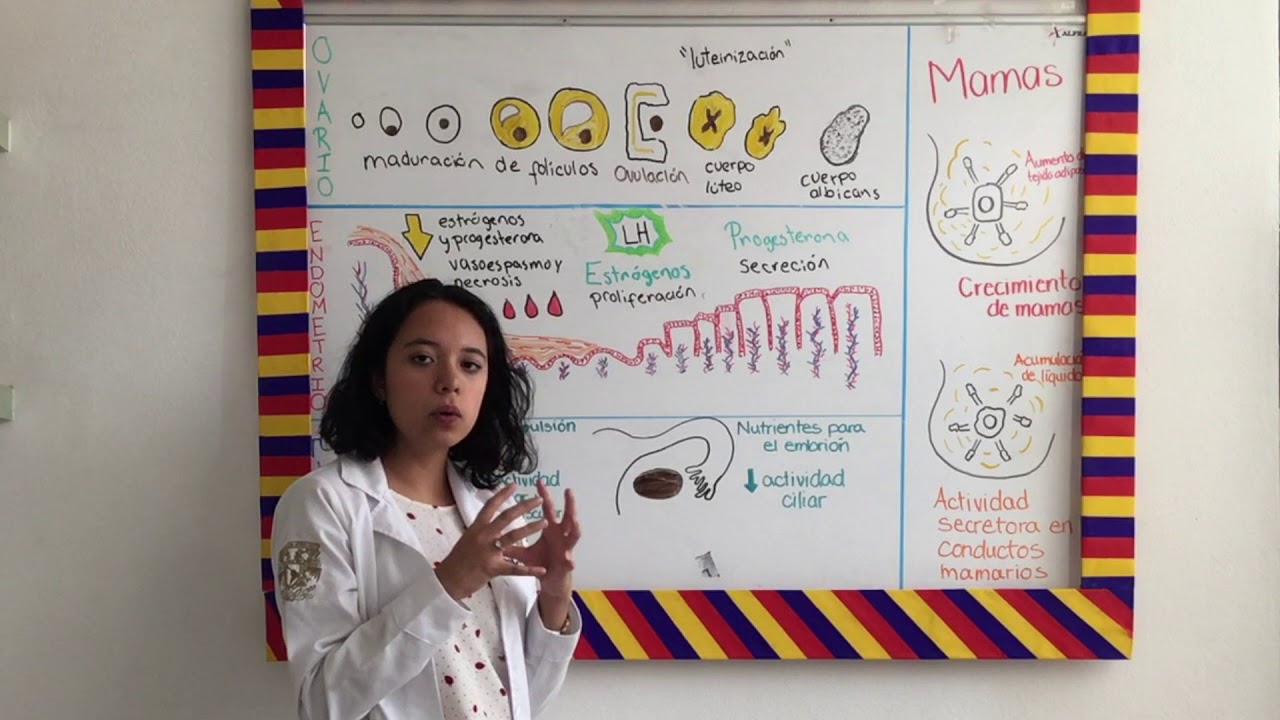 OVARIO
"luteinización"
maduración de folículos
Ovulación
cuerpo
lúteo
cuerpo
albicans
ENDOMETRIO
estrógenos
y progesterona
vasoespasmo y
necrosis
LH
Estrógenos
proliferación
Progesterona
secreción
Nutrientes para
el embrión
actividad
ciliar
Mamas
Aumento
tejido adipos
Crecimiento
de mamas
Acumulació
de líquido
Actividad
secretora en
conductos
mamarios